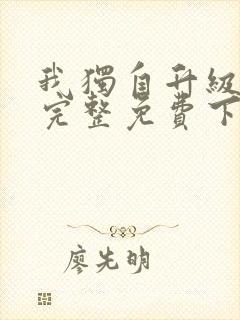 我獨自升級
完整免費下
廖先明